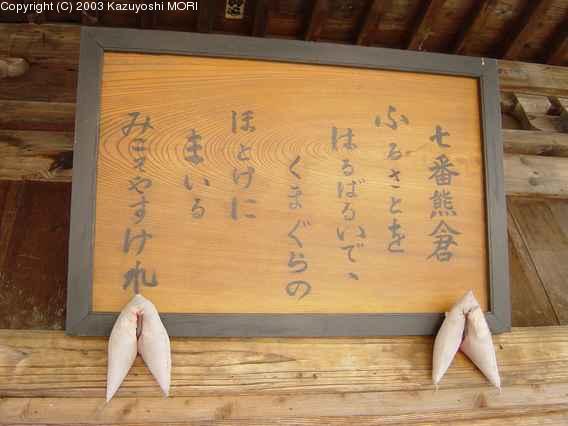 Copyright (C) 2003 Kazuyoshi MORI
七番熊倉
ふるさとを
はるばるいで、
くまぐらの
ほとけに
まいる
みこそやすけれ